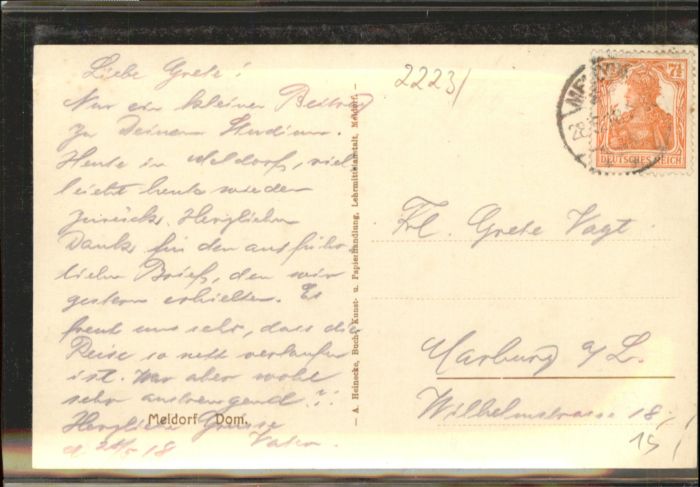 Liebe Grete!
Nur ein kleiner Beitrag
zu Deinem Studium.
Heute in Meldorf, viel
leicht heute wieder
zurück. Herzlichen
Dank für den ausführ
lichen Brief, den wir
gestern erhielten. Es
freut uns sehr, dass die
Reise so nett verlaufen
ist. War aber wohl
sehr anstrengend?!
Herzliche Grüsse
18 Vater.
Meldorf Dom.
— A. Heinecke, Buch- Kunst- u. Papierhandlung, Lehrmittelanstalt, Meldorf. —
22231
7½
DEUTSCHES REICH
28.5.18
Frl. Grete Vagt
Marburg a/L.
Wilhelmstrasse 18
15